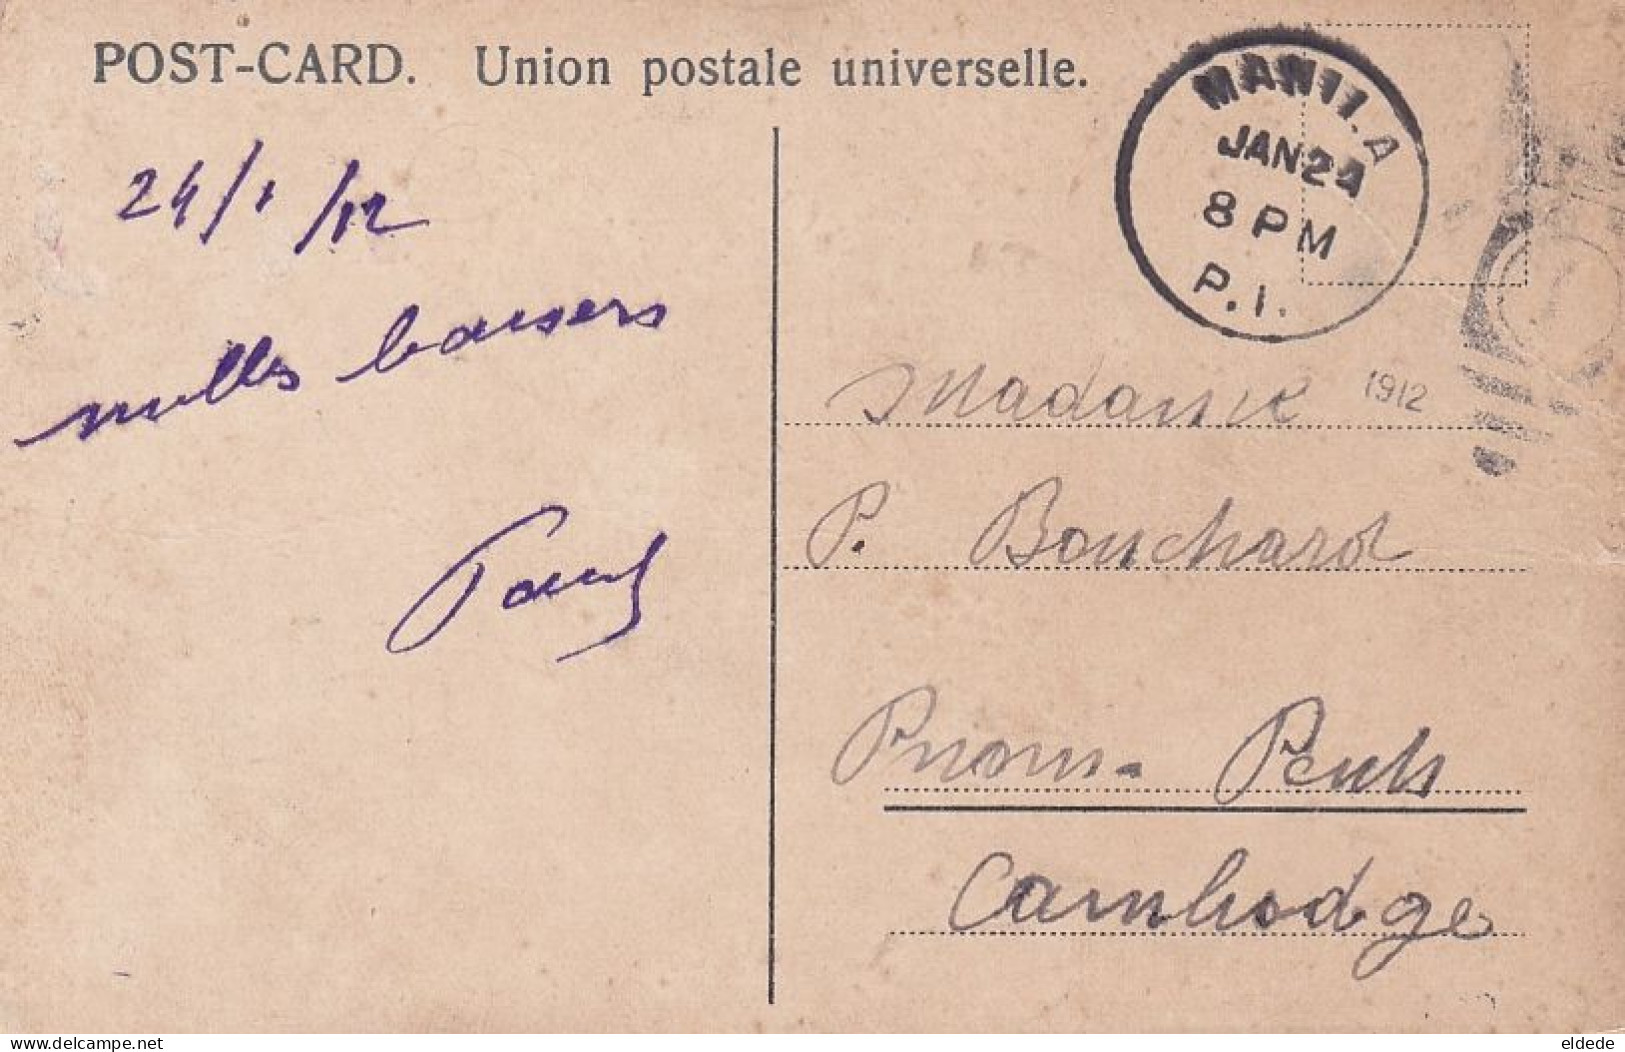 POST-CARD. Union postale universelle.
MANILA
JAN 24
8 PM
P.I.
1912
24/1/12
milles baisers
Paul
Madame
P. Bouchard
Pnom-Penh
Cambodge
delcampe.net
eldede